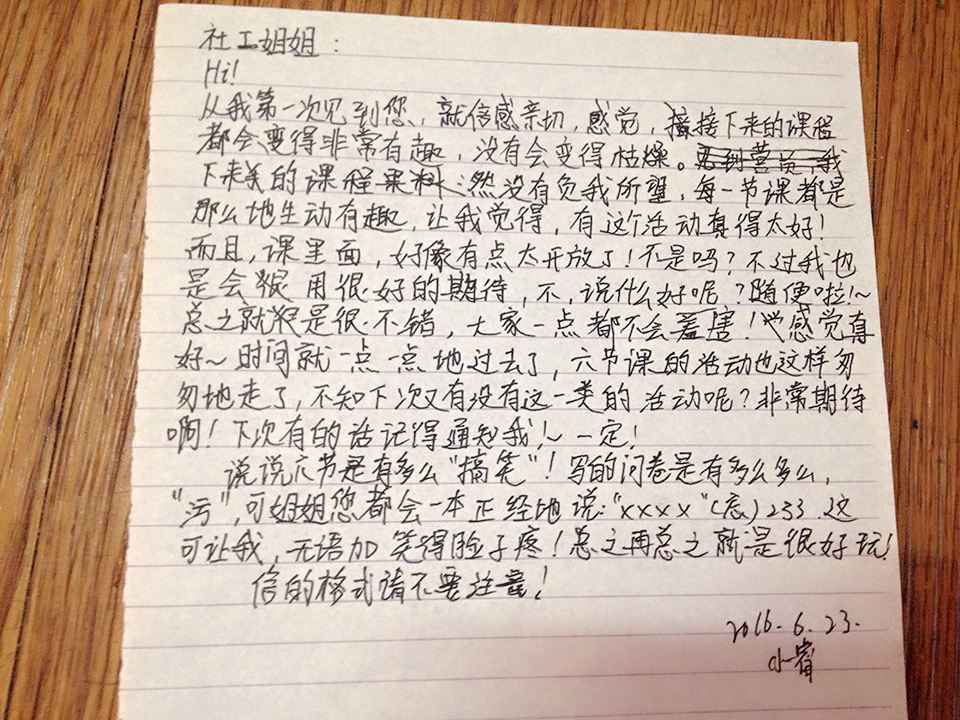 社工姐姐：
Hi!
从我第一次见到您，就倍感亲切，感觉，接下来的课程
都会变得非常有趣，没有会变得枯燥。
下来的课程果然没有负我所望，每一节课都是
那么地生动有趣，让我觉得，有这个活动真得太好！
而且，课里面，好像有点太开放了！不是吗？不过我也
是会很用很好的期待，不，说什么好呢？随便啦！~
总之就是很不错，大家一点都不会羞害！也感觉真
好~时间就一点一点地过去了，六节课的活动也这样匆
匆地走了，不知下次又有没有这一类的活动呢？非常期待
啊！下次有的话记得通知我！~一定！
说说六节是有多么“搞笑”！写的问卷是有多么多么，
“污”，可姐姐您都会一本正经地说：“xxxx”（态）233.这
可让我，无语加笑得脸子疼！总之再总之就是很好玩！
信的格式请不要注意！
2016.6.23.
小睿